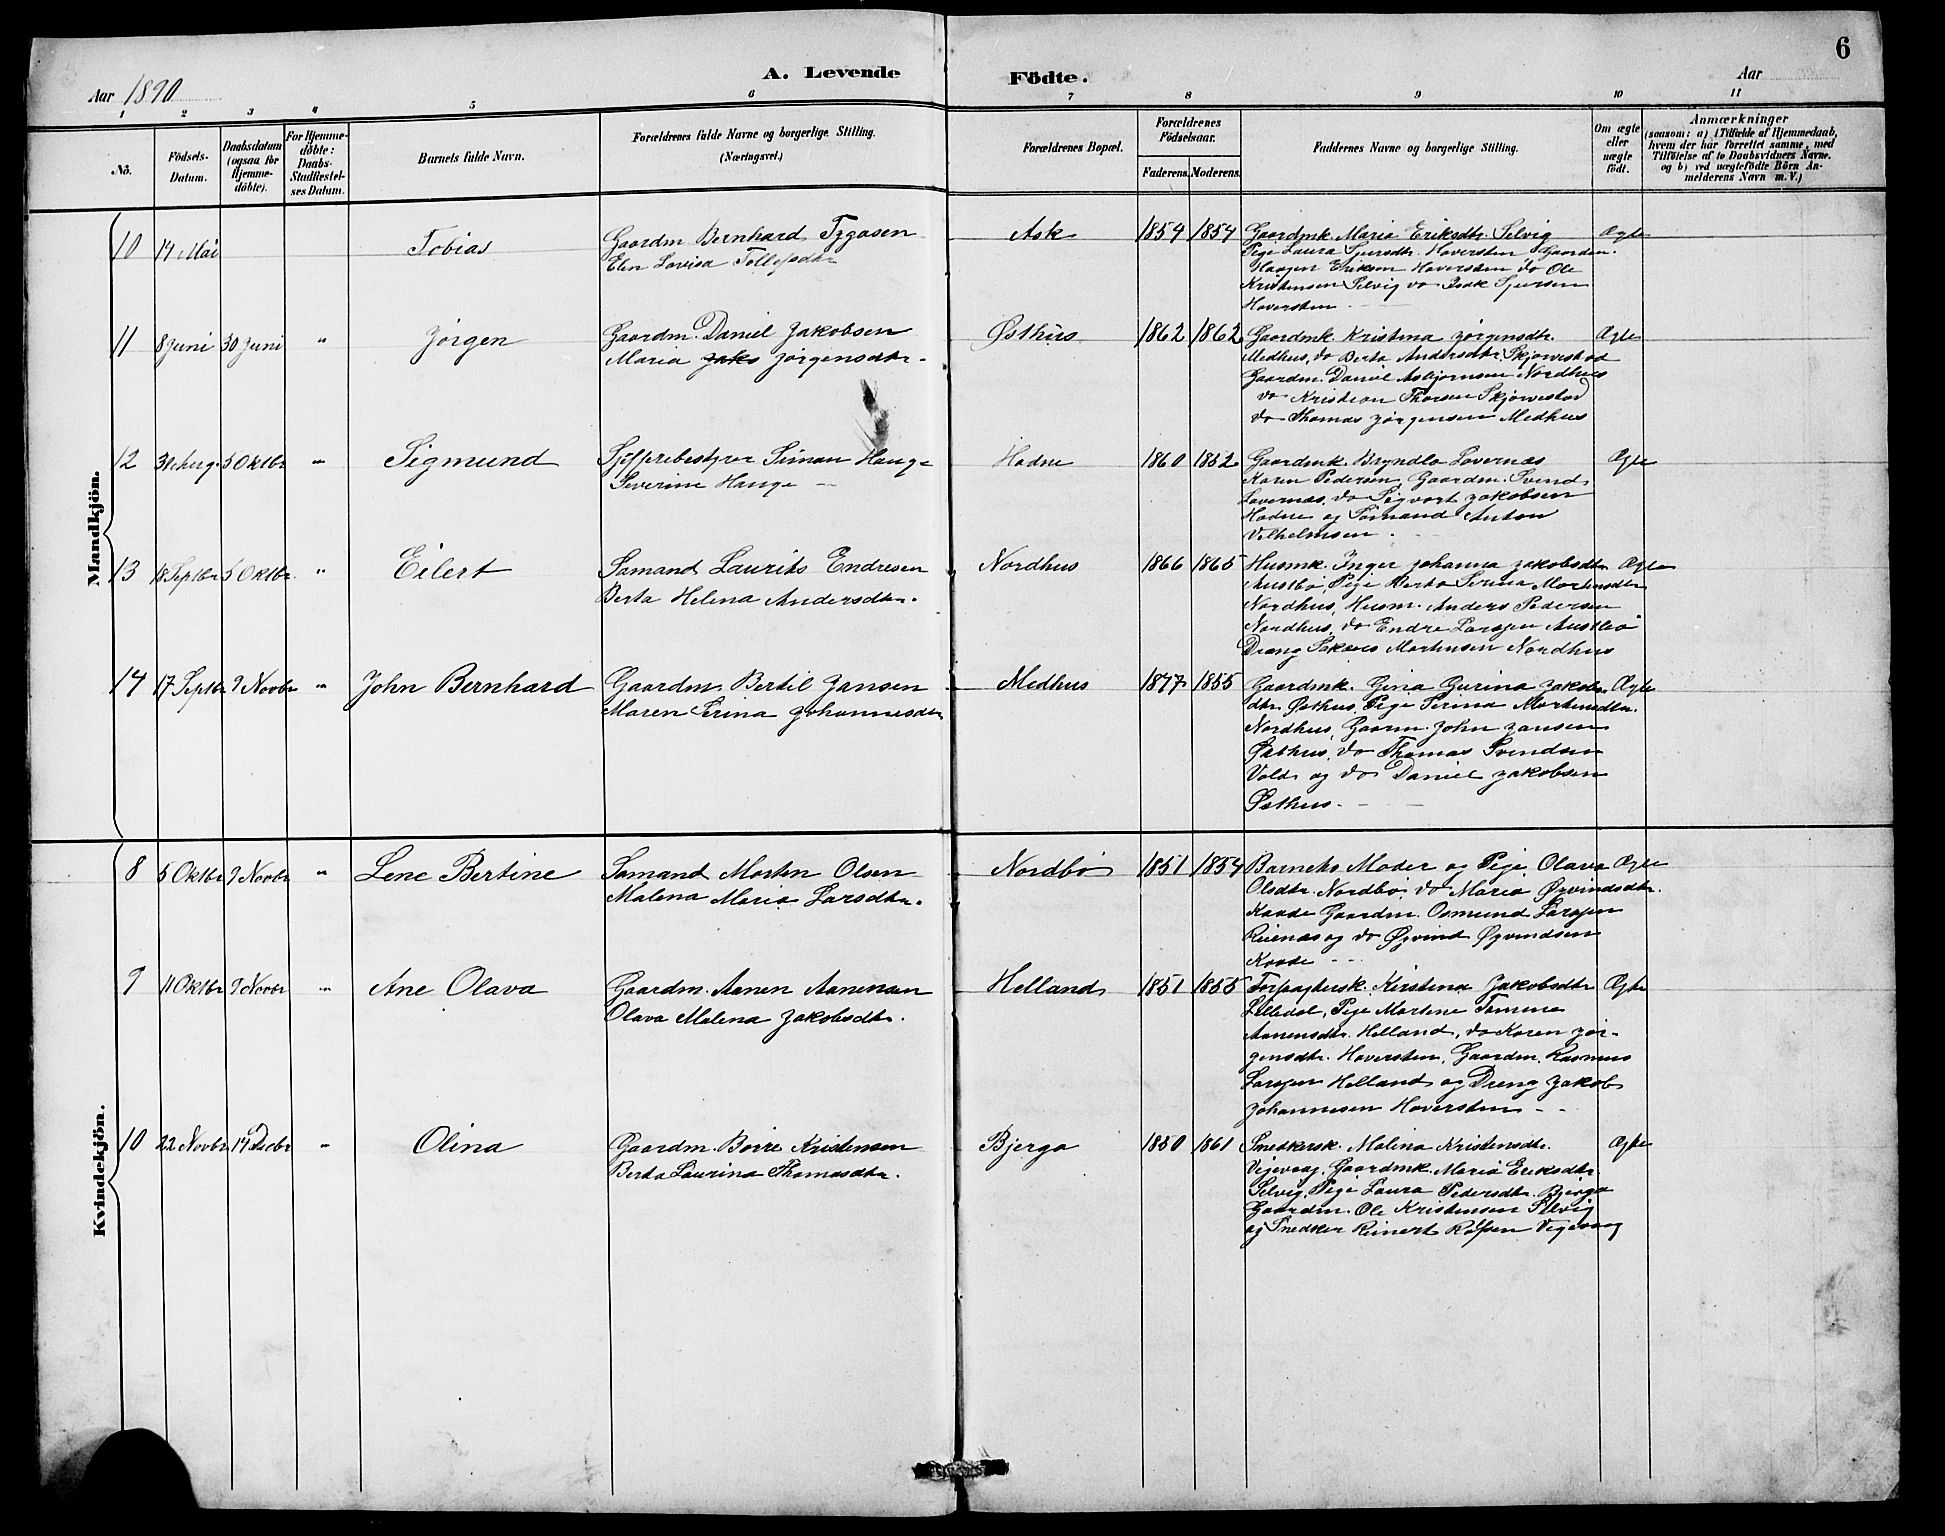 6
Aar 1890
A. Levende Födte.
Aar
1 2 3 4 5 6 7 8 9 10 11
No.
Födsels-Datum.
Daabsdatum (ogsaa for Hjemmedöbte).
For Hjemmedöbte: Daabs-Stadfæstelses Datum.
Barnets fulde Navn.
Forældrenes fulde Navne og borgerlige Stilling. (Næringsvei.)
Forældrenes Bopæl.
Forældrenes Födselsaar.
Faderens. Moderens.
Faddernes Navne og borgerlige Stilling.
Om ægte eller uægte født.
Anmærkninger
(saasom: a) i Tilfælde af Hjemmedaab,
hvem der har forrettet samme, med
Tilföielse af to Daabsvidners Navne.
og b) ved uægtefödte Börn An-
melderens Navn m. V.)
Mandkjön.
10 14 Mai Tobias
Gaardm Bernhard Tygesen
Elen Lovisa Tollefsdtr
Ask 1854 1854
Gaardmk. Maria Eriksdtr. Selvig
Pige Laura Sjursdtr. Hoversten, Gaardm.
Haagen Eriksen Hoversten do Ole
Kristensen Selvig do Isak Sjursen
Hoversten
Ægte
11 8 Juni 30 Juni " Jörgen
Gaardm. Daniel Jakobsen
Maria Jaks Jörgensdtr.
Østhus 1862 1862
Gaardmk. Kristina Jörgensdtr.
Medhus, do Berta Andersdtr. Skjørvestad
Gaardm. Daniel Asbjornsen Nordhus
do Kristian Thorsen Skjørvestad
do Thomas Jörgensen Medhus
Ægte
12 5 Oktbr " Sigmund
Simon Hauge
Severine Hauge
Hodne 1860 1852
Gaardmk. Lovernæs
Karen Pedersen, Gaardm. Svend
Lovernæs, do Sigvart Jakobsen
Hodne og Sömand Anton
Vilhelmsen.
Ægte
13 18 Septbr 5 Oktbr. " Eilert
Sömand Laurits Endresen
Berta Helena Andersdtr.
Nordhus 1866 1865
Husmk. Inger Johanna Jakobsdtr.
Austbö, Pige Berta Serina Mortensdtr
Nordhus, Husm. Anders Pedersen
Nordhus, do Endre Larsen Austbö
Dreng Mortensen Nordhus
Ægte
14 17 Septbr 9 Novbr " John Bernhard
Gaardm. Bertil Jansen
Maren Serina Johannesdtr
Medhus 1855
Gaardmk. Gina Gurina Jakobs
dtr. Østhus, Pige Serina Mortensdtr.
Nordhus, Gaarm. John Jansen
Østhus, do Thomas Svendsen
Vold og do Daniel Jakobsen
Østhus.
Ægte
Kvindekjön.
8 5 Oktbr 9 Novbr " Lene Bertine
Sömand Morten Olsen
Malena Maria Larsdtr.
Nordbö 1851 1854
Barnets Moder og Pige Olava
Olsdtr. Nordbö, do Maria Øivindsdtr.
Kaade Gaardm. Osmund Larsen
Reienæs og do Øivind Øivindsen
Kaade
Ægte
9 11 Oktbr 9 Novbr " Ane Olava
Gaardm. Aanen Aanensen
Olava Malena Jakobsdtr.
Helland 1851 1855
Forpagtersk. Kirstina Jakobsdtr
Lilledal, Pige Martine Tomine
Aanensdtr. Helland, do Karen Jör-
gensdtr. Hoversten, Gaardm. Rasmus
Larsen Helland og Dreng Jakob
Johannesen Hoversten
Ægte
10 22 Novbr 14 Decbr " Olina
Gaardm. Börre Kristensen
Berta Laurina Thomasdtr.
Bjerga 1850 1861
Snedkersk. Malina Kristensdtr.
Vigevaag, Gaardmk. Maria Eriksdtr
Selvig, Pige Laura Pedersdtr. Bjerga
Gaardm. Ole Kristensen Selvig
og Snedker Reinert Vigevaag
Ægte